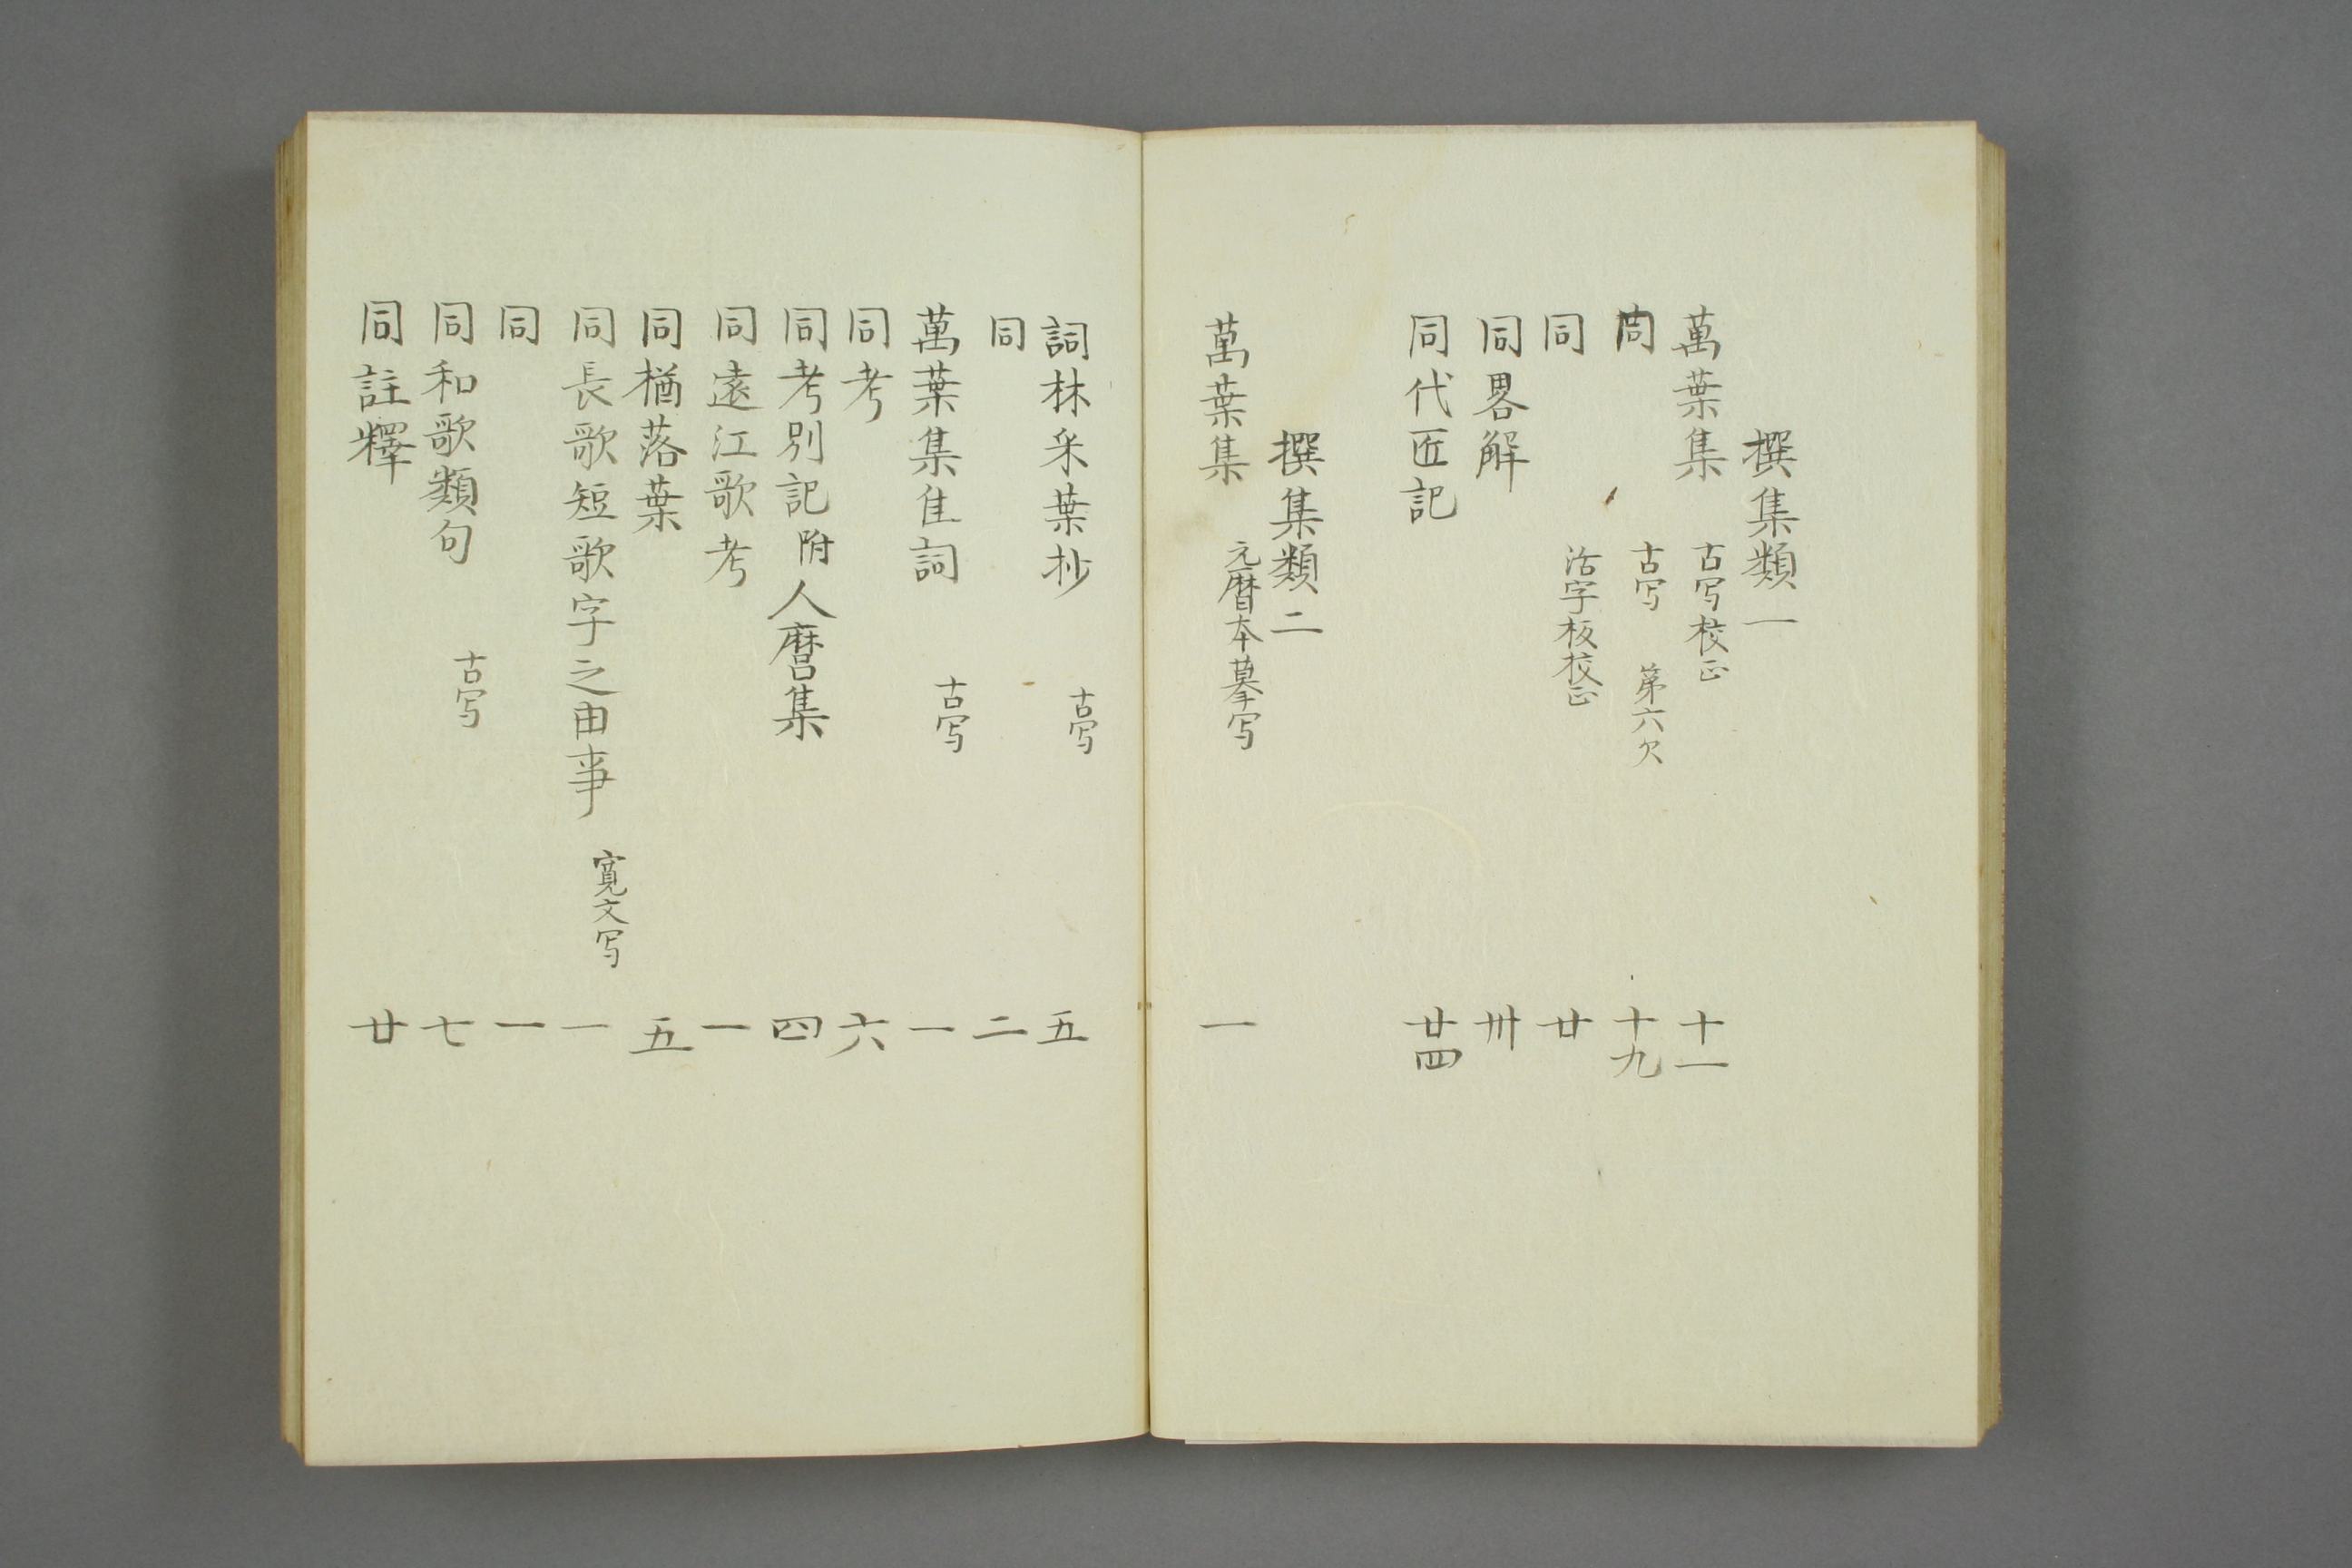 撰集類一
萬葉集 古写校正 十一
同 古写 第六欠 十九
同 活字板校正 廿
同畧解 卅
同代匠記 廿四
撰集類二
萬葉集 元暦本摹写 一
詞林采葉抄 古写 五
同 二
萬葉集佳詞 古写 一
同考 六
同考別記附人麿集 四
同遠江歌考 一
同楢落葉 五
同長歌短歌字之由事 寛文写 一
同 一
同和歌類句 古写 七
同註釋 廿